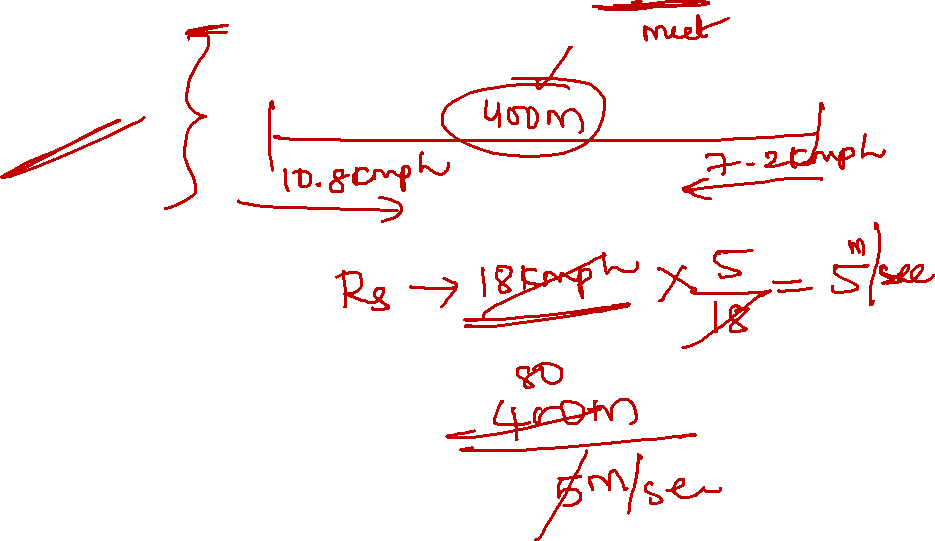 meet
400m
10.8kmph 7.2kmph
Rs → 18kmph × 5/18 = 5 m/sec
80
400m
5m/sec